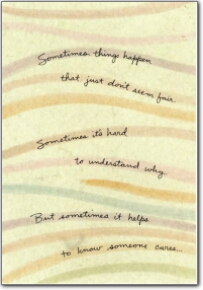 Sometimes things happen
that just don't seem fair.
Sometimes it's hard
to understand why.
But sometimes it helps
to know someone cares...